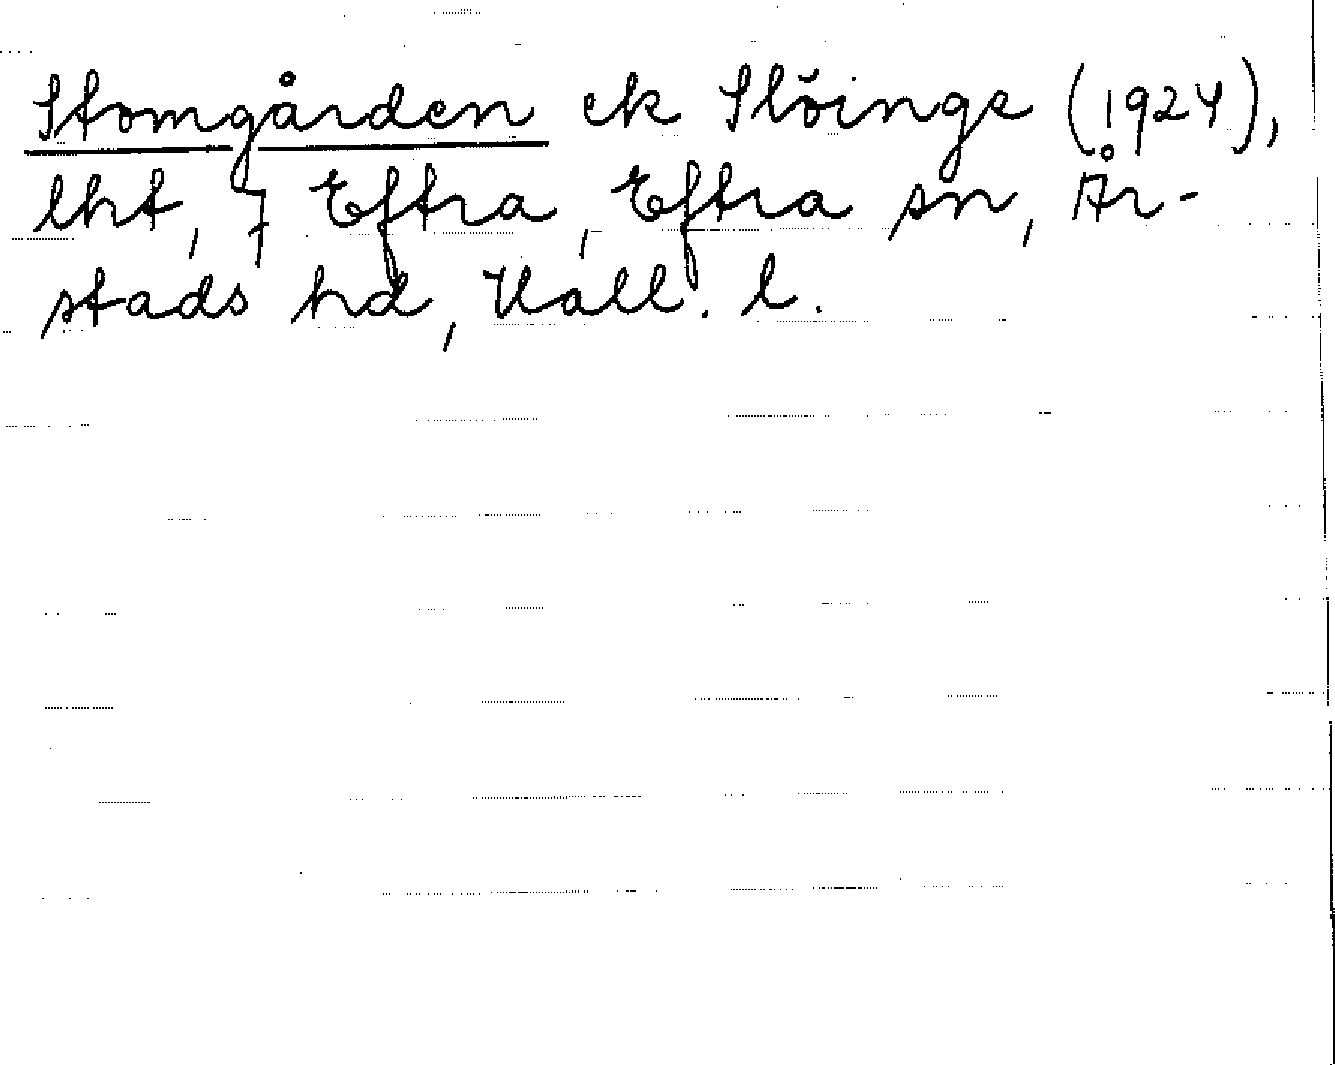 Stomgården ek Slöinge (1924),
lht, 7 Eftra, Eftra sn, År-
stads hd, Hall. l.